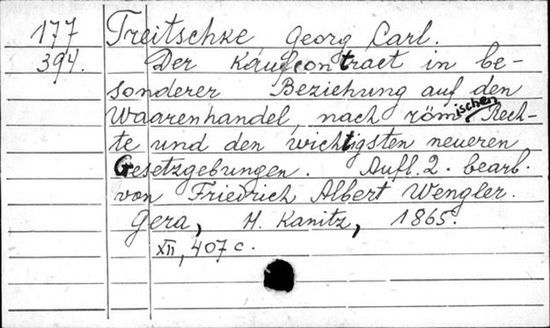 177 Treitschke Georg Carl.
394. Der Kaufcontract in be-
sonderer Beziehung auf den
Waarenhandel, nach römischen Rech-
te und den wichtigsten neueren
Gesetzgebungen. Aufl. 2. bearb.
von Friedrich Albert Wengler.
Gera, H. Kanitz, 1865.
XII, 407 c.